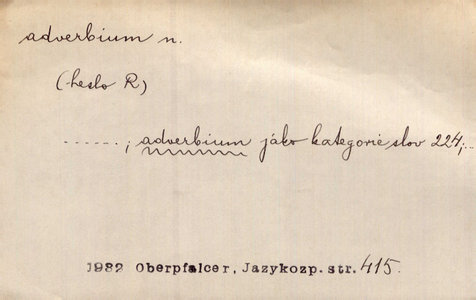 adverbium n.
(heslo R)
......; adverbium jáko kategorie slov 224;..
1932 Oberpfalcer, Jazykozp. str. 415.